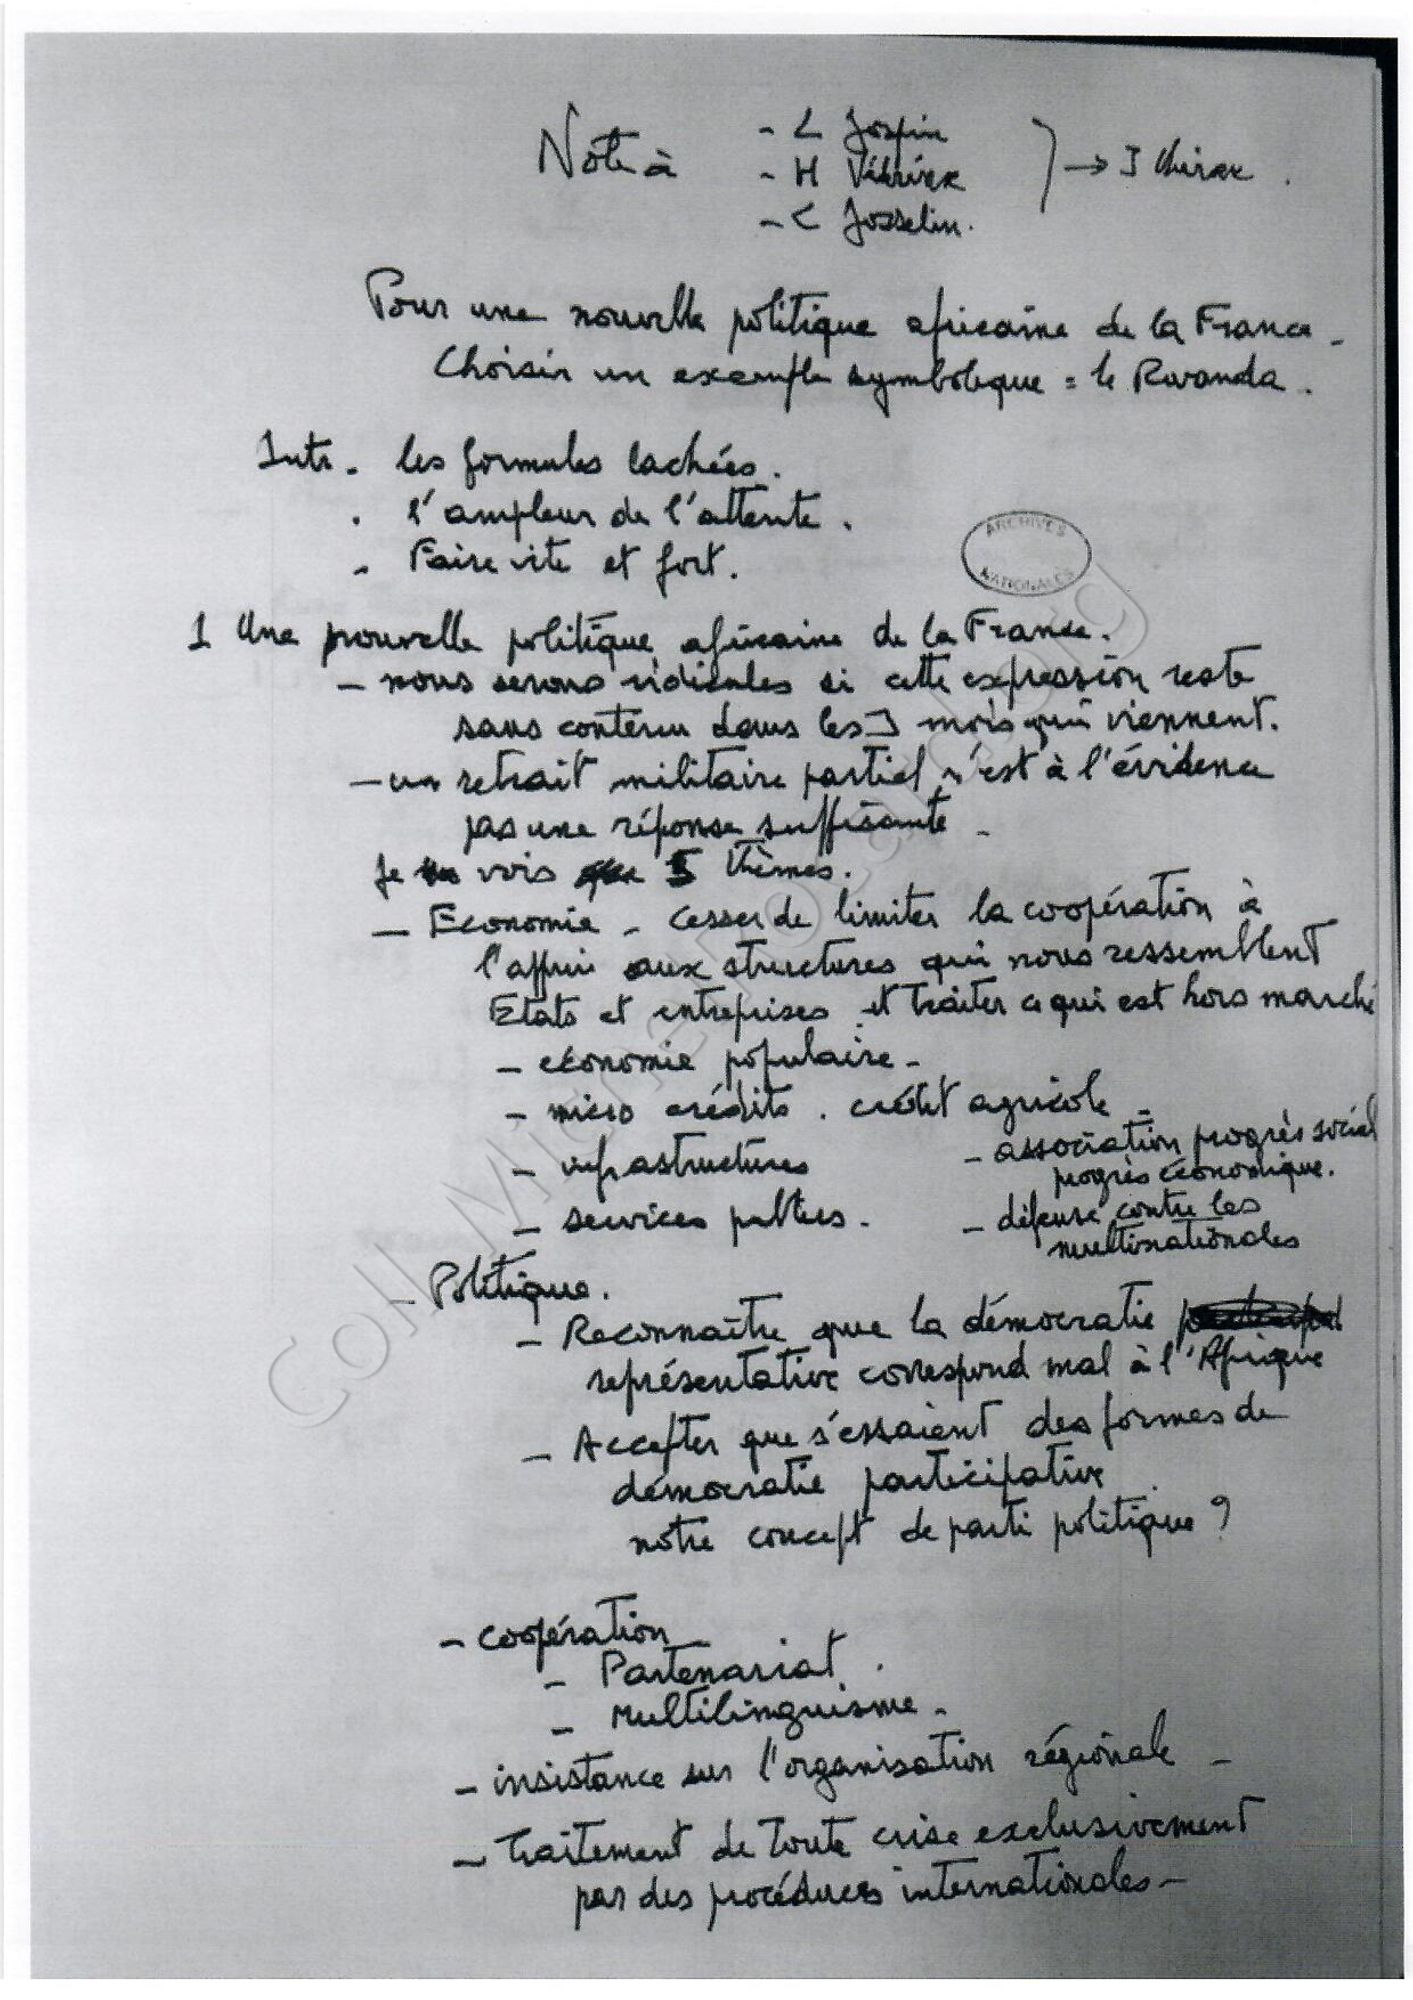 Note à
- L Jospin
- H Védrine
- C Josselin.
→ J Chirac.
Pour une nouvelle politique africaine de la France -
Choisir un exemple symbolique = le Rwanda.
Intr. les formules lachées.
. l'ampleur de l'attente.
- Faire vite et fort.
ARCHIVES
NATIONALES
1 Une nouvelle politique africaine de la France.
- nous serons ridicules si cette expression reste
sans contenu dans les 3 mois qui viennent.
- un retrait militaire partiel n'est à l'évidence
pas une réponse suffisante -
Je vois 5 thèmes.
- Economie - Cesser de limiter la coopération à
l'appui aux structures qui nous ressemblent
Etats et entreprises et traiter ce qui est hors marché
- economie populaire -
- micro crédits. crédit agricole -
- infrastructures
- services publics.
- association progrès social
progrès économique.
- défense contre les
multinationales
- Politique.
- Reconnaître que la démocratie
représentative correspond mal à l'Afrique
- Accepter que s'essaient des formes de
démocratie participative.
notre concept de parti politique ?
- coopération
- Partenariat.
- Multilinguisme.
- insistance sur l'organisation régionale -
- Traitement de toute crise exclusivement
par des procédures internationales -
Coll. Michel Rocard.org